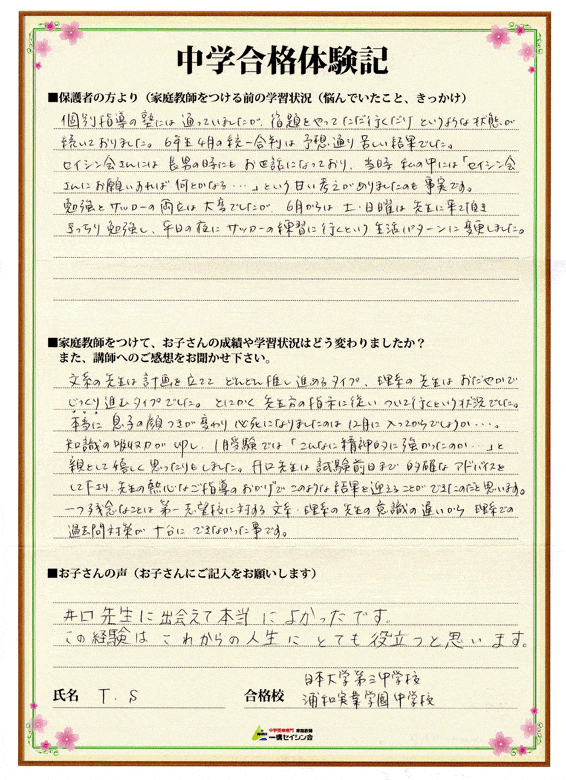 中学合格体験記
■保護者の方より（家庭教師をつける前の学習状況（悩んでいたこと、きっかけ）
個別指導の塾には通っていましたが、宿題をやってただ行くだけ というような状態が
続いておりました。6年生4月の統一合判は予想通り苦しい結果でした。
セイシン会さんには長男の時にもお世話になっており、当時 私の中には「セイシン会
さんにお願いすれば何とかなる・・・」という甘い考えがありましたのも事実です。
勉強とサッカーの両立は大変でしたが、6月からは土・日曜は先生に来て頂き
きっちり勉強し、平日の夜にサッカーの練習に行くという生活パターンに変更しました。
■家庭教師をつけて、お子さんの成績や学習状況はどう変わりましたか？
また、講師へのご感想をお聞かせ下さい。
文系の先生は計画を立ててどんどん推し進めるタイプ、理系の先生はおだやかで
じっくり進むタイプでした。とにかく先生方の指示に従いついて行くという状況でした。
本当に息子の顔つきが変わり必死になりましたのは12月に入ってからでしょうか・・・。
知識の吸収力がUPし、1月受験では「こんなに精神的に強かったのか・・・」と
親として嬉しく思ったりもしました。井口先生は試験前日まで的確なアドバイスを
して下さり、先生の熱心なご指導のおかげでこのような結果を迎えることができたのだと思います。
一つ残念なことは第一志望校に対する文系・理系の先生の意識の違いから理系での
過去問対策が十分にできなかった事です。
■お子さんの声（お子さんにご記入をお願いします）
井口先生に出会えて本当によかったです。
この経験はこれからの人生にとても役立つと思います。
氏名 T.S 合格校 日本大学第三中学校
浦和実業学園中学校
中学受験専門 家庭教師
一橋セイシン会